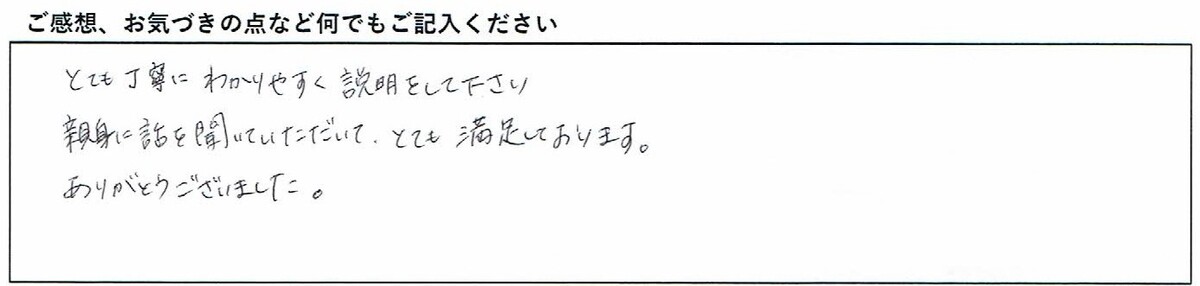 ご感想、お気づきの点など何でもご記入ください
とても丁寧に わかりやすく 説明をして下さい
親身に話を聞いていただいて、とても 満足しております。
ありがとうございました。